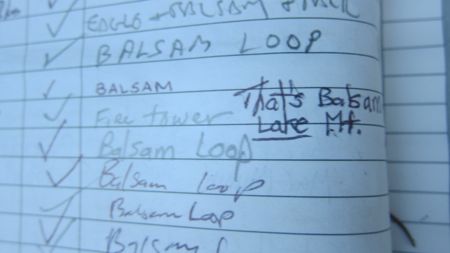 BALSAM LOOP
BALSAM
That's Balsam
Fire tower
Lake Mt.
Balsam Loop
Balsam loop
Balsam Loop
Balsam